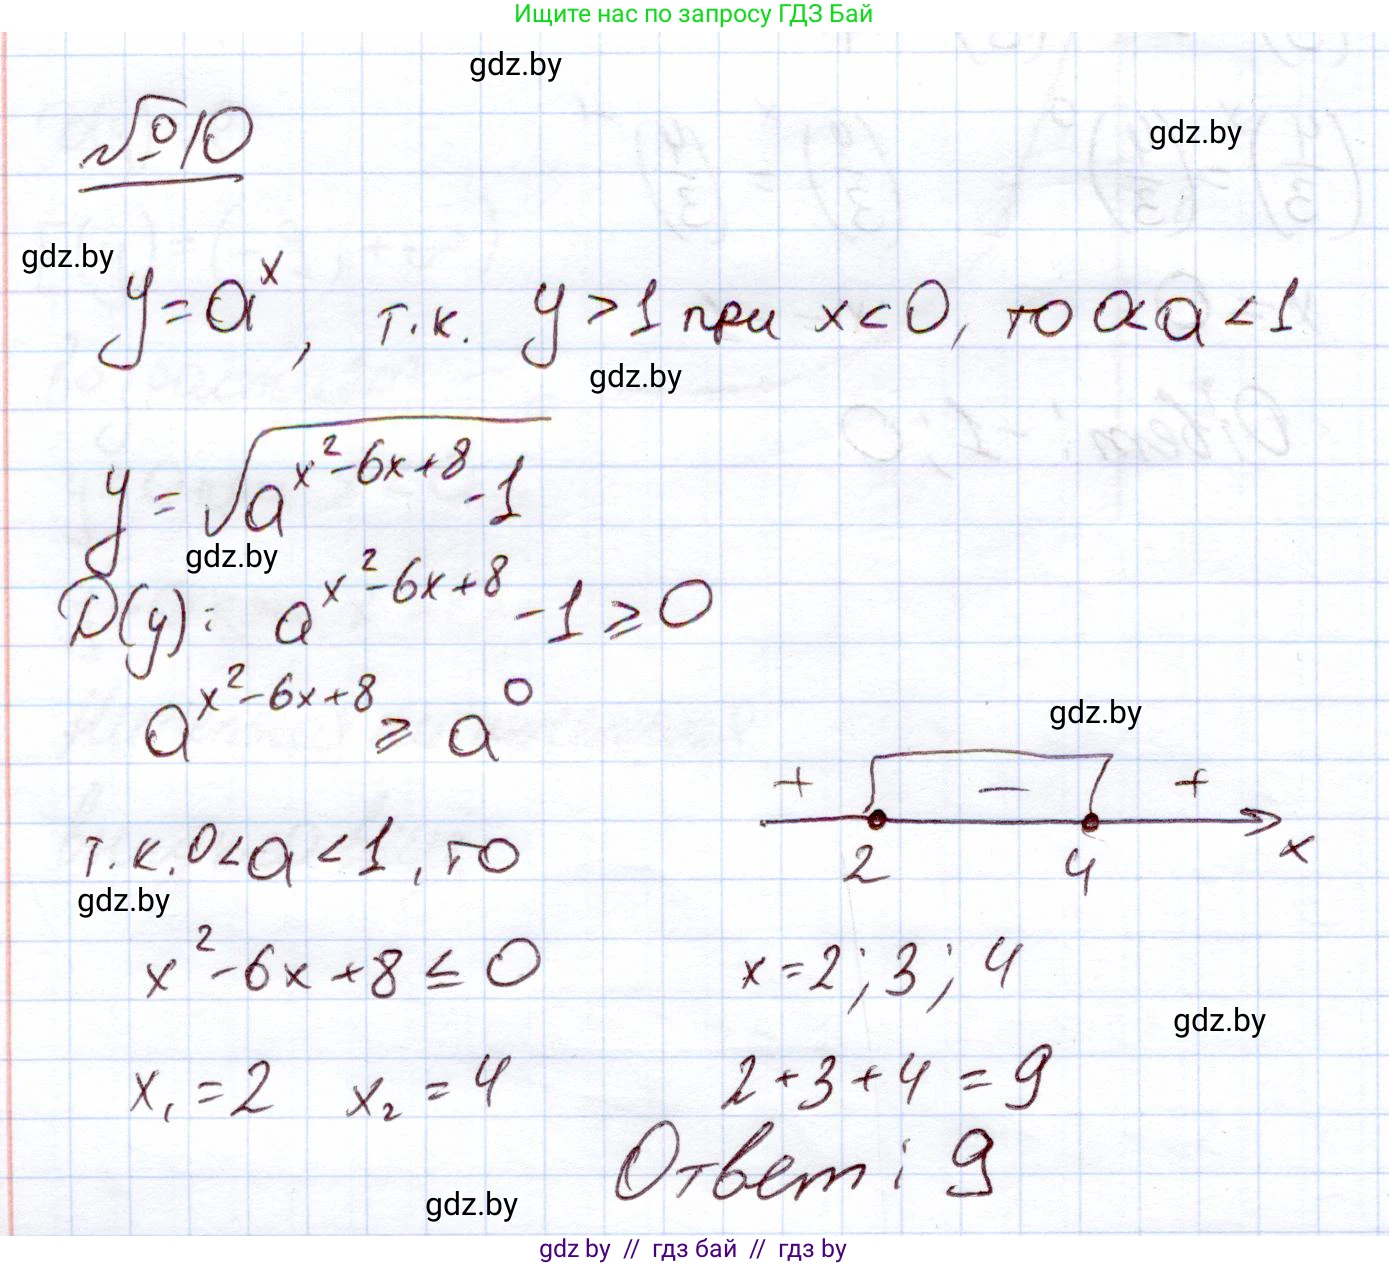 Ищите нас по запросу ГДЗ Бай
gdz.by
gdz.by
№10
gdz.by
y = a^x, т.к. y > 1 при x < 0, то 0 < a < 1
gdz.by
y = √(a^(x²-6x+8) - 1)
gdz.by
D(y): a^(x²-6x+8) - 1 ≥ 0
a^(x²-6x+8) ≥ a^0
gdz.by
+ − +
2 4 x
т.к. 0 < a < 1, то
gdz.by
x² - 6x + 8 ≤ 0
x = 2; 3; 4
gdz.by
x₁ = 2 x₂ = 4
2 + 3 + 4 = 9
Ответ: 9
gdz.by
gdz by // гдз бай // гдз by